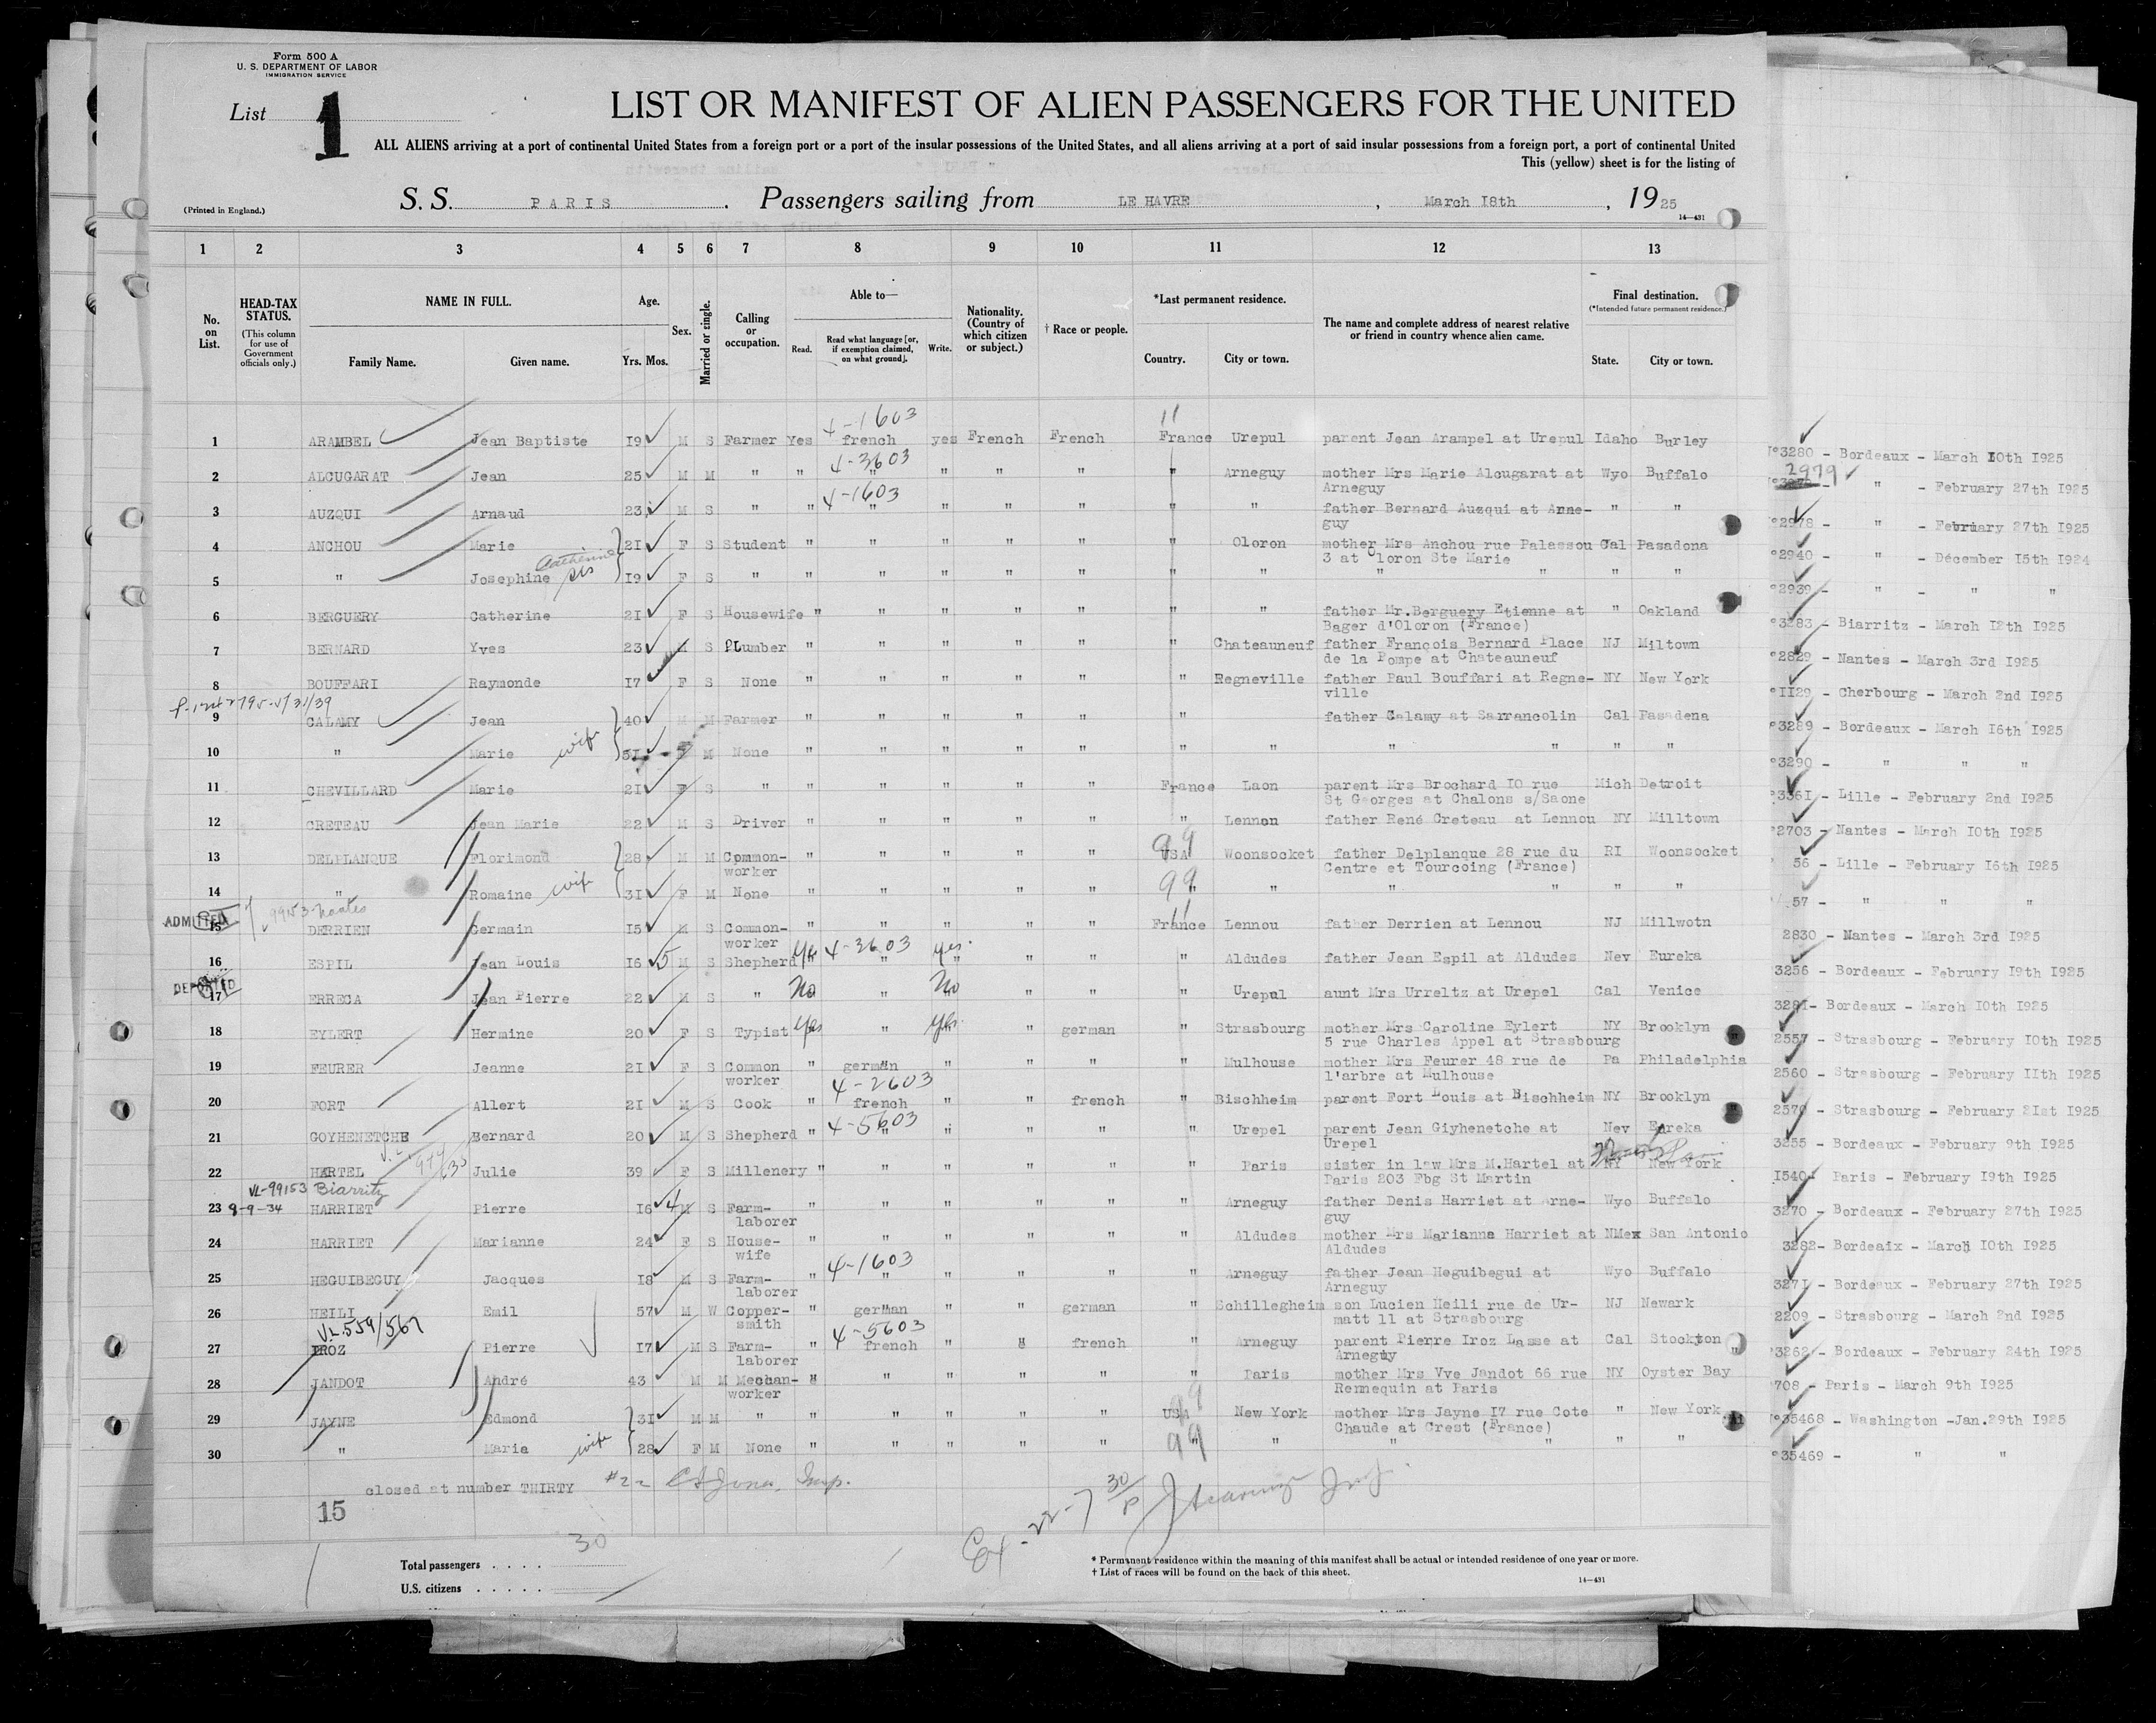 Form 500 A
U. S. DEPARTMENT OF LABOR
IMMIGRATION SERVICE
List 1
LIST OR MANIFEST OF ALIEN PASSENGERS FOR THE UNITED
ALL ALIENS arriving at a port of continental United States from a foreign port or a port of the insular possessions of the United States, and all aliens arriving at a port of said insular possessions from a foreign port, a port of continental United
This (yellow) sheet is for the listing of
(Printed in England.)
S. S. PARIS. Passengers sailing from LE HAVRE, March 18th, 1925
14—431
1 2 3 4 5 6 7 8 9 10 11 12 13
No. on List. HEAD-TAX STATUS. (This column for use of Government officials only.) NAME IN FULL. Family Name. Given name. Age. Yrs. Mos. Sex. Married or single. Calling or occupation. Able to— Read. Read what language [or, if exemption claimed, on what ground]. Write. Nationality. (Country of which citizen or subject.) † Race or people. *Last permanent residence. Country. City or town. The name and complete address of nearest relative or friend in country whence alien came. Final destination. (*Intended future permanent residence.) State. City or town.
4-1603 11
1 ARAMBEL Jean Baptiste 19 M S Farmer Yes french yes French French France Urepul parent Jean Arampel at Urepul Idaho Burley 3280 - Bordeaux - March 10th 1925
4-3603 2979
2 ALCUGARAT Jean 25 M M " " " " " " " Arneguy mother Mrs Marie Alcugarat at Wyo Buffalo " - February 27th 1925
Arneguy
4-1603
3 AUZQUI Arnaud 23 M S " " " " " " " " father Bernard Auzqui at Anne- " " 2978 - " - February 27th 1925
guy
4 ANCHOU Marie 21 F S Student " " " " " " Oloron mother Mrs Anchou rue Palassou Cal Pasadona 2940 - " - Décember 15th 1924
3 at Oloron Ste Marie
Catherine
5 " Josephine sis 19 F S " " " " " " " " " " " " 2939 - " - " "
6 BERGUERY Catherine 21 F S Housewife " " " " " " " father Mr.Berguery Etienne at " Oakland 3283 - Biarritz - March 12th 1925
Bager d'Oloron (France)
7 BERNARD Yves 23 M S PLumber " " " " " " Chateauneuf father François Bernard Place NJ Miltown 2829 - Nantes - March 3rd 1925
de la Pompe at Chateauneuf
8 BOUFFARI Raymonde 17 F S None " " " " " " Regneville father Paul Bouffari at Regne- NY New York 1129 - Cherbourg - March 2nd 1925
ville
9 CALAMY Jean 40 M M Farmer " " " " " " father Calamy at Sarrancolin Cal Pasadena 3289 - Bordeaux - March 16th 1925
10 " Marie wife 51 F M None " " " " " " " " " " " 3290 - " " "
11 CHEVILLARD Marie 21 F S " " " " " " France Laon parent Mrs Brochard 10 rue Mich Detroit 3361 - Lille - February 2nd 1925
St Georges at Chalons s/Saone
12 CRETEAU Jean Marie 22 M S Driver " " " " " " Lennon father René Creteau at Lennou NY Milltown 2703 - Nantes - March 10th 1925
99
13 DELPLANQUE Florimond 28 M M Common- " " " " " USA Woonsocket father Delplanque 28 rue du RI Woonsocket 56 - Lille - February 16th 1925
worker Centre et Tourcoing (France)
99
14 " Romaine wife 31 F M None " " " " " " " " " " " 57 - " " "
ADMITTED 11
15 DERRIEN Germain 15 M S Common- " " " " " France Lennou father Derrien at Lennou NJ Millwotn 2830 - Nantes - March 3rd 1925
worker
16 ESPIL Jean Louis 16 5 M S Shepherd Yes 4-3603 yes. " " " Aldudes father Jean Espil at Aldudes Nev Eureka 3256 - Bordeaux - February 19th 1925
DEPORTED
17 ERRECA Jean Pierre 22 M S " No " No " " " Urepul aunt Mrs Urreltz at Urepel Cal Venice 3281- Bordeaux - March 10th 1925
18 EYLERT Hermine 20 F S Typist Yes " Yes. " german " Strasbourg mother Mrs Caroline Eylert NY Brooklyn 2557 - Strasbourg - February 10th 1925
5 rue Charles Appel at Strasbourg
19 FEURER Jeanne 21 F S Common " german " " " " Mulhouse mother Mrs Feurer 48 rue de Pa Philadelphia 2560 - Strasbourg - February 11th 1925
worker l'arbre at Mulhouse
4-2603
20 FORT Allert 21 M S Cook " french " " french " Bischheim parent Fort Louis at Bischheim NY Brooklyn 2570 - Strasbourg - February 21st 1925
4-5603
21 GOYHENETCHE Bernard 20 M S Shepherd " " " " " " Urepel parent Jean Giyhenetche at Nev Eureka 3255 - Bordeaux - February 9th 1925
Urepel
22 HARTEL Julie 39 F S Millenery " " " " " " Paris sister in law Mrs M.Hartel at NY New York 1540 - Paris - February 19th 1925
Paris 203 Fbg St Martin
VL-99153 Biarritz
23 8-9-34 HARRIET Pierre 16 4 M S Farm- " " " " " " Arneguy father Denis Harriet at Arne- Wyo Buffalo 3270 - Bordeaux - February 27th 1925
laborer guy
24 HARRIET Marianne 24 F S House- " " " " " " Aldudes mother Mrs Marianna Harriet at NMex San Antonio 3282- Bordeaix - March 10th 1925
wife Aldudes
4-1603
25 HEGUIBEGUY Jacques 18 M S Farm- " " " " " " Arneguy father Jean Heguibegui at Wyo Buffalo 3271 - Bordeaux - February 27th 1925
laborer Arneguy
26 HEILI Emil 57 M W Copper- " german " " german " Schillegheim son Lucien Heili rue de Ur- NJ Newark 2209 - Strasbourg - March 2nd 1925
smith matt 11 at Strasbourg
VL.559/567 4-5603
27 IROZ Pierre 17 M S Farm- " french " " french " Arneguy parent Pierre Iroz Lasse at Cal Stockton 3262 - Bordeaux - February 24th 1925
laborer Arneguy
28 JANDOT André 43 M M Mecchan- " " " " " " Paris mother Mrs Vve Jandot 66 rue NY Oyster Bay 708 - Paris - March 9th 1925
worker Rennequin at Paris
99
29 JAYNE Edmond 31 M M " " " " " " USA New York mother Mrs Jayne 17 rue Cote " New York 35468 - Washington -Jan.29th 1925
Chaude at Crest (France)
99
30 " Maria wife 28 F M None " " " " " " " " " " " 35469 - " "
closed at number THIRTY #22 Insp.
15
Total passengers . . . . 30
U.S. citizens . . . . .
* Permanent residence within the meaning of this manifest shall be actual or intended residence of one year or more.
† List of races will be found on the back of this sheet.
14—431